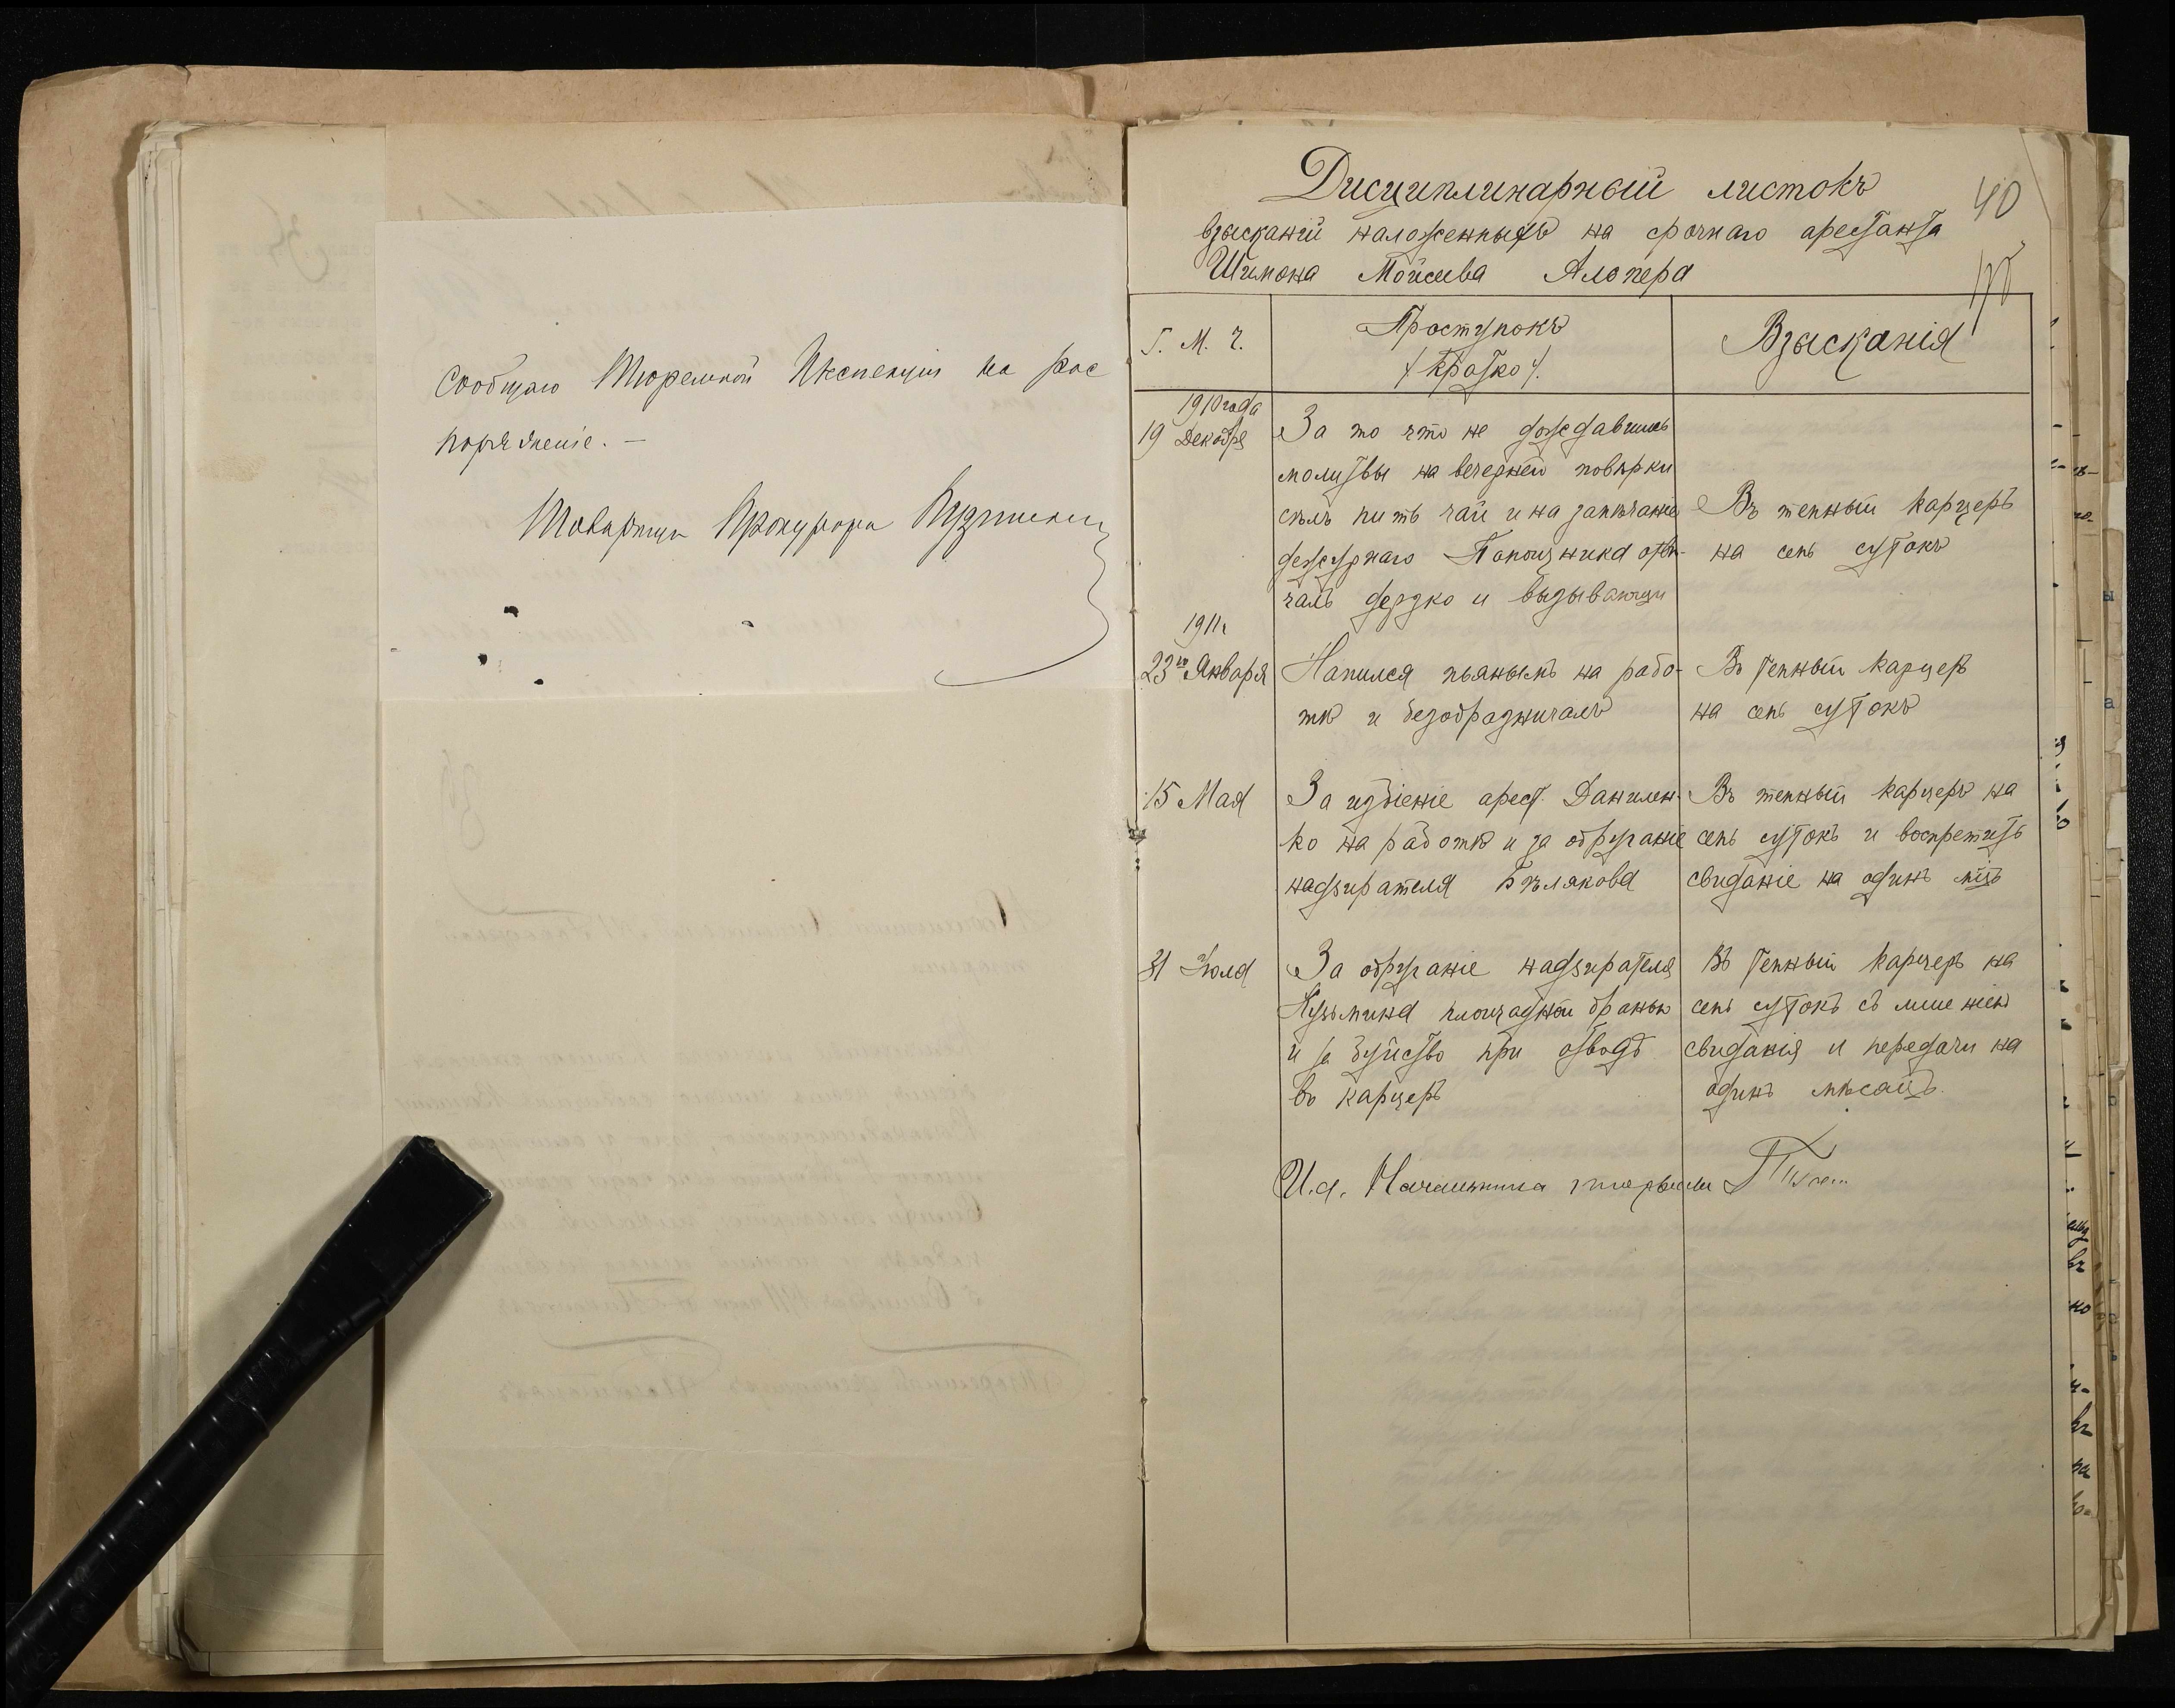 Сообщаю Тюремной Инспекціи на рас
поряженіе. —
Товарищъ Прокурора
40
Дисциплинарный листокъ
взысканій наложенныхъ на срочнаго арестанта
Шимона Мойсеева Алопера
Г. М. Ч.
Проступокъ
/ Кратко /.
Взысканія
1910 года
19 Декабря
За то что не дождавшись
молитвы на вечерней повѣрки
сѣлъ пить чай и на замѣчаніе
дежурнаго Помощника отвѣ-
чалъ дерзко и вызывающи
Въ темный карцеръ
на семь сутокъ
1911 г
23го Января
Напился пьянымъ на рабо-
тѣ и безобразничалъ
Въ темный карцеръ
на семь сутокъ
15 Мая
За избіеніе арест. Данилен-
ко на работѣ и за обруганіе
надзирателя Бѣлякова
Въ темный карцеръ на
семь сутокъ и воспретить
свиданіе на одинъ мцъ
31 Іюля
За обруганіе надзирателя
Кузьмина площадной бранью
и за буйство при отводѣ
во карцеръ
Въ темный карцеръ на
семь сутокъ съ лишеніемъ
свиданія и передачи на
одинъ мѣсяцъ.
И.д. Начальника тюрьмы